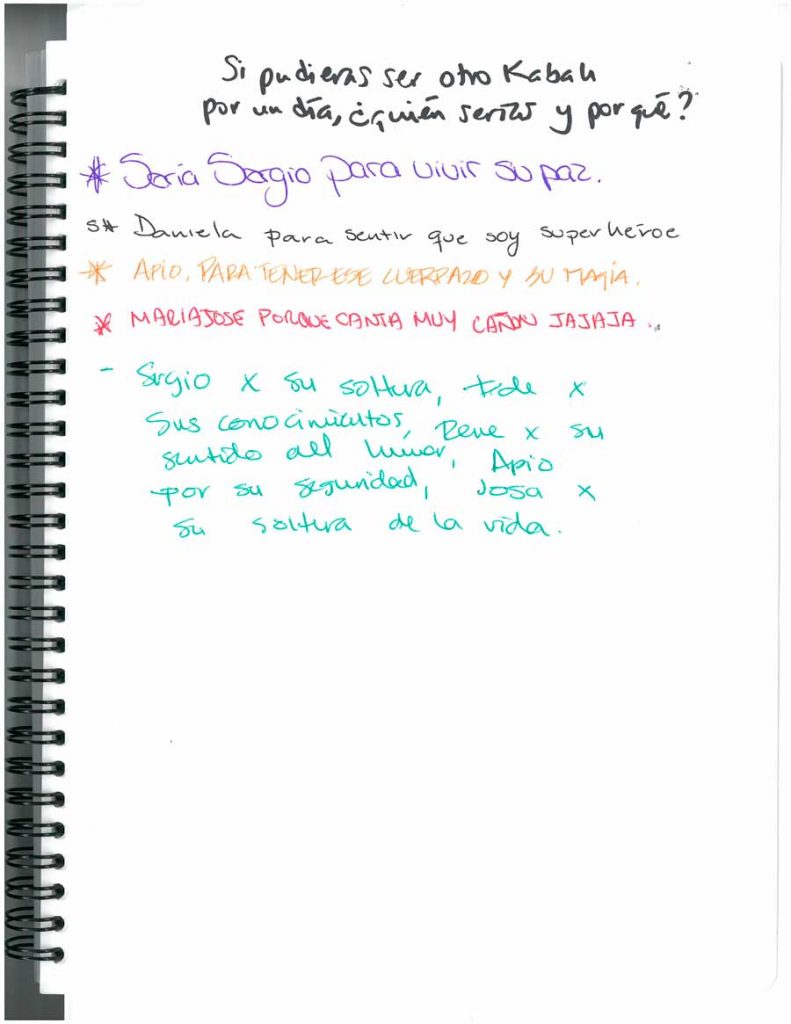 Si pudieras ser otro Kabah
por un día, ¿quién serías y por qué?
* Sería Sergio para vivir su paz.
s* Daniela para sentir que soy superhéroe
* APIO, PARA TENER ESE CUERPAZO Y SU MAGIA.
* MARIAJOSE PORQUE CANTA MUY CAÑON JAJAJA.
- Srgio x su soltura, x
sus conocimientos, Rene x su
sentido del humor, Apio
por su seguridad, Josa x
su soltura de la vida.